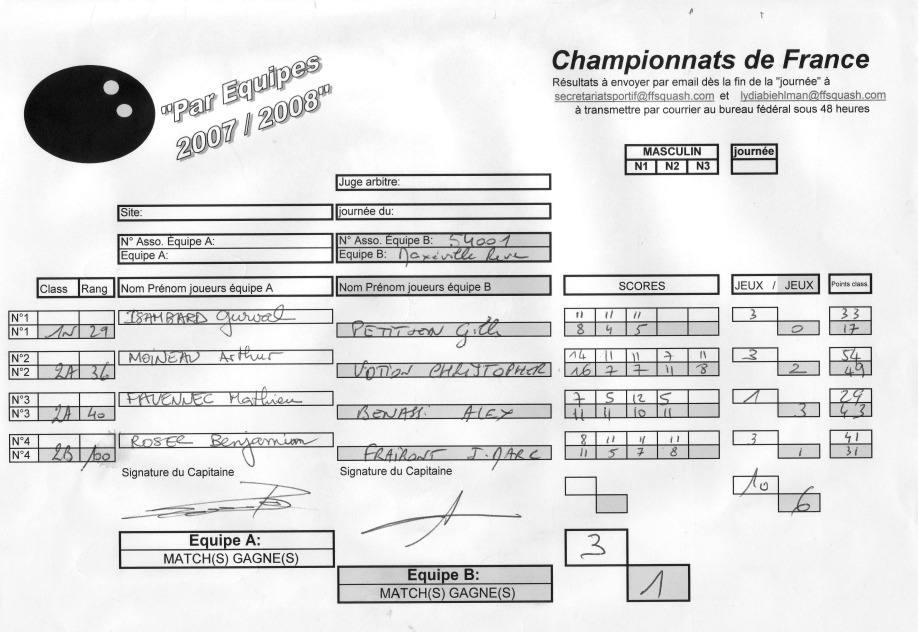 "Par Equipes
2007 / 2008"
Championnats de France
Résultats à envoyer par email dès la fin de la "journée" à
secretariatsportif@ffsquash.com et lydiabiehlman@ffsquash.com
à transmettre par courrier au bureau fédéral sous 48 heures
MASCULIN
N1 N2 N3
journée
Juge arbitre:
Site: journée du:
N° Asso. Équipe A: N° Asso. Équipe B: 54001
Equipe A: Equipe B: Maxéville
Class Rang Nom Prénom joueurs équipe A Nom Prénom joueurs équipe B SCORES JEUX / JEUX Points class.
N°1 ISAMBARD Gurval 11 11 11 3 33
N°1 1N 29 PETITJEAN Gilles 8 4 5 0 17
N°2 MOINEAU Arthur 14 11 11 7 11 3 54
N°2 2A 36 VOTION CHRISTOPHER 16 7 7 11 8 2 49
N°3 FAVENNEC Mathieu 7 5 12 5 1 29
N°3 2A 40 BENASSI ALEX 11 11 10 11 3 43
N°4 ROSEC Benjamin 8 11 11 11 3 41
N°4 2B 100 FRAIRONT J.MARC 11 5 7 8 1 31
Signature du Capitaine Signature du Capitaine
10
6
Equipe A:
MATCH(S) GAGNE(S)
3
Equipe B:
MATCH(S) GAGNE(S)
1